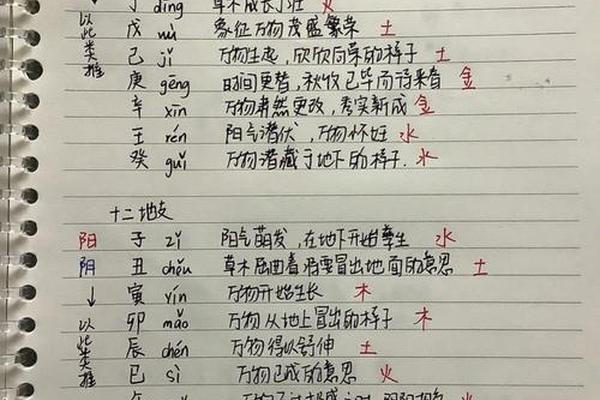 丁 dīng 草木成长了壮 火
戊 wù 象征万物茂盛繁荣 土
己 jǐ 万物生起，欣欣向荣的样子 土
庚 gēng 时间更替，秋收已毕而待来春 金
辛 xīn 万物肃然更改，秀实新成 金
壬 rén 阳气潜伏，万物怀妊 水
癸 guǐ 万物潜藏于地下的样子. 水
以此类推
十二地支
阳 子 zǐ 阳气萌发，在地下开始孽生 水
阴 丑 chǒu 草木屈曲着将要冒出地面的意思 土
↓ 寅 yín 万物开始生长 木
卯 mǎo 万物从地上冒出的样子 木
辰 chén 万物得以舒伸 土
巳 sì 万物已成的意思 火
以此类推